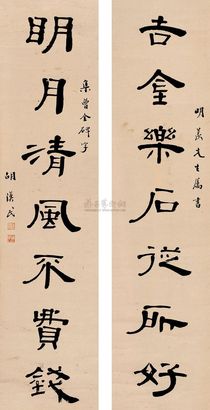 吉金樂石從所好
明羕先生屬書
集曹全碑字
明月清風不費錢
胡漢民